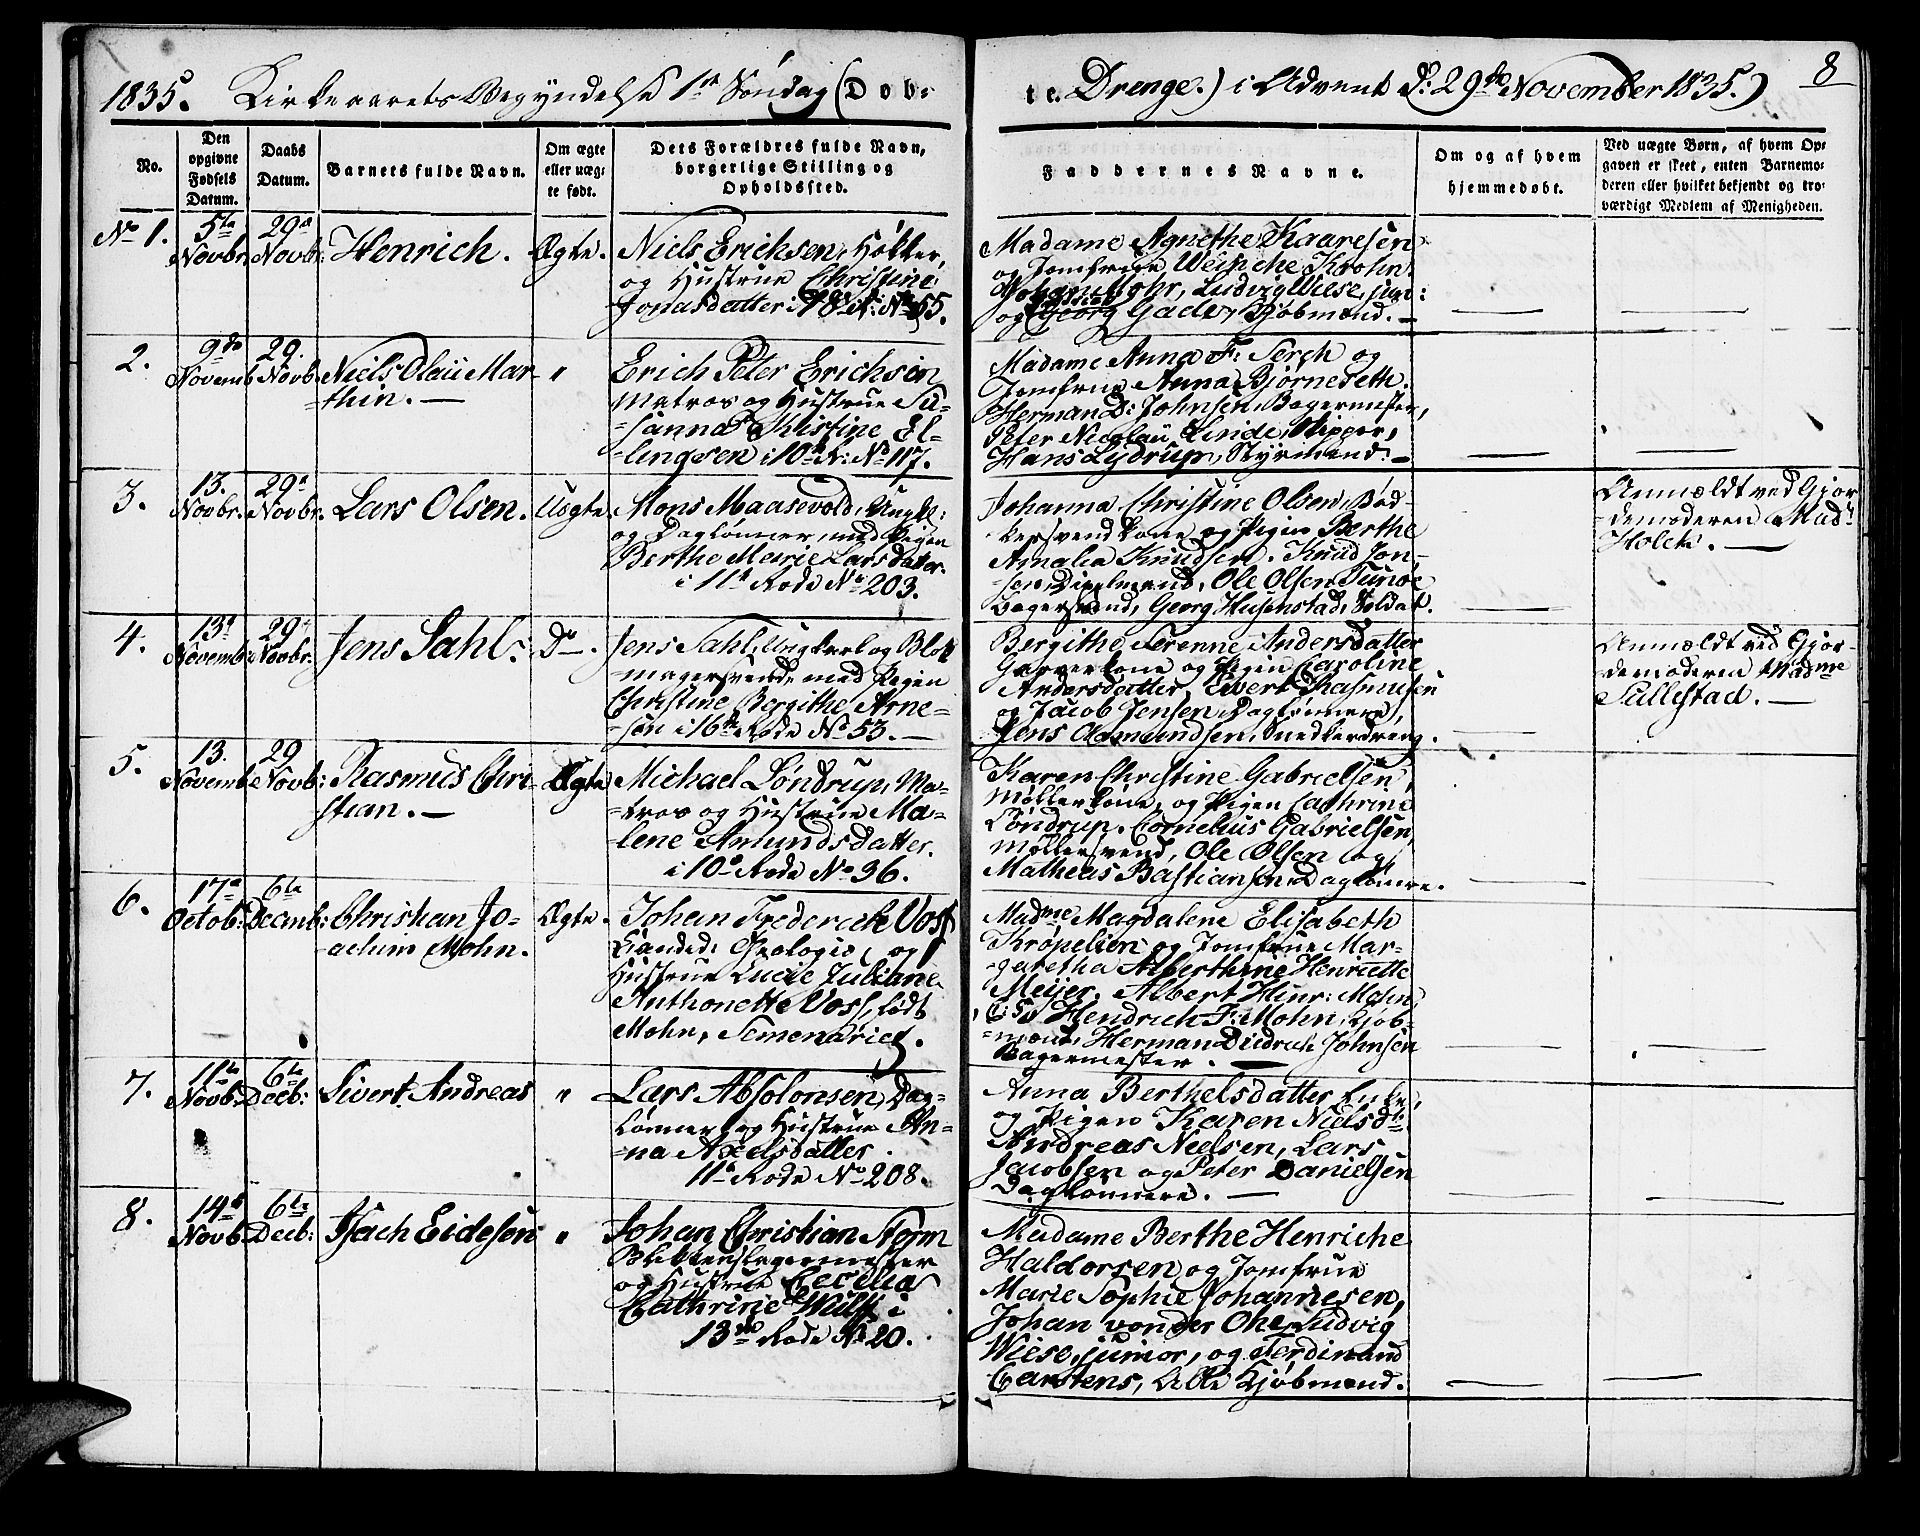 1835. Kirkeaarets Begyndelse 1ste Søndag (Dob-
te. Drenge.) i Advent d: 29de November 1835.)
8
No.
Den
opgivne
Fødsels
Datum.
Daabs
Datum.
Barnets fulde Navn.
Om ægte
eller uæg-
te født.
Dets Forældres fulde Navn,
borgerlige Stilling og
Opholdssted.
Faddernes Navne.
Om og af hvem
hjemmedøbt.
Ved uægte Børn, af hvem Op-
gaven er skeet, enten Barnemo-
deren eller hvilket bekjendt og tro-
værdigt Medlem af Menigheden.
No 1.
5te
Novbr.
29de
Novbr:
Henrich.
Ægte.
Niels Erichsen, Høkker,
og Hustrue Christine
Jonasdatter i 18de R: No 55.
Madame Agnethe Kaaresen
og Jomfrue Wencke Krohn.
Mohr, Ludvig Wiese, jun:
og Georg Gade, Kjøbmænd.
2.
9de
Novemb
29.
Novb.
Niels Olaü Mar-
=thin.
"
Erich Peter Erichsen
Matros og Hustrue Su-
=sanna Christine El-
=lingsen i 10de R: No 117.
Madame Anna F: Serch og
Jomfrue Anna Bjørneseth.
Herman D: Johnsen, Bagermester,
Peter Nicolaü Linde,
Hans Lydrup, Styrmænd.
3.
13.
Novbr.
29de
Novbr.
Lars Olsen.
Uægte.
Mons Maasevold, Ungk:
og Daglønner, med Pigen
Berthe Marie Larsdatter.
i 11te Rode No 203.
Johanna Christine Olsen, Bød-
kersvend Kone og Pigen Berthe
Amalia Knudsen. Knud Jon-
=sen, Ole Olsen Tunøe
Bagersvend, Georg Husenstad, Soldat.
Anmældt ved Gjor-
=demoderen Madm
Holck.
4.
13de
Novemb:
29de
Novbr.
Jens Sahl.
Do.
Jens Sahl, Ungkarl og Blok-
=magersvend med Pigen
Christine Bergithe Arne-
=sen i 16de Rode No 53.
Bergithe Serenne Andersdatter
Garverkone og Pigen Caroline
Andersdatter, Sivert Rasmusen
og Jacob Jensen, Daglønnere,
Jens Aamundsen, Snedkerdreng.
Anmældt ved Gjor-
demoderen Madme
Sullestad.
5.
13.
Novemb
29
Novb:
Rasmus Chri-
=stian.
Ægte
Michael Løndrup, Ma-
=tros og Hustrue Ma-
=lene Amundsdatter.
i 10de Rode No 36.
Karen Christine Gabrielsen,
Møllerkone, og Pigen Cathrine
Løndrup. Cornelius Gabrielsen,
Møllersvend, Ole Olsen og
Matheas Bastiansen, Daglønnere.
6.
17de
Octob:
6te
Decemb:
Christian Jo-
=achim Mohn.
Ægte.
Johan Frederick Voss
Candid: Theologiæ, og
Hustrue Lucie Juliane
Anthonette Voss, født
Mohn, Semenariet.
Madme Magdalene Elisabeth
Krøpelien og Jomfrue Mar-
=garetha Alberthine Henriette
Meijer. Albert Hinr: Mohn,
Hendrich F: Mohn, Kjøb-
=mænd, Herman Didrich Johnsen
Bagermester.
7.
11te
Novb.
6te
Decb:
Sivert Andreas
"
Lars Absolonsen, Dag-
Lønner, og Hustrue An-
=na Axelsdatter.
11te Rode No 208.
Anna Berthelsdatter Enke,
og Pigen Karen Nielsdt.
Andreas Nielsen, Lars
Jacobsen og Peter Danielsen
Daglønnere.
8.
14de
Novb.
6te
Decb:
Isach Eidesen
"
Johan Christian Storm
Blikkenslagermester
og Hustrue Cecilia
Cathrine Wulff i
13de Rode No 20.
Madame Berthe Henriche
Haldorsen og Jomfrue
Marie Sophie Johannesen,
Johan vonder Ohe, Ludvig
Wiese, junior, og Ferdinand
Carstens, Alle Kjøbmænd.